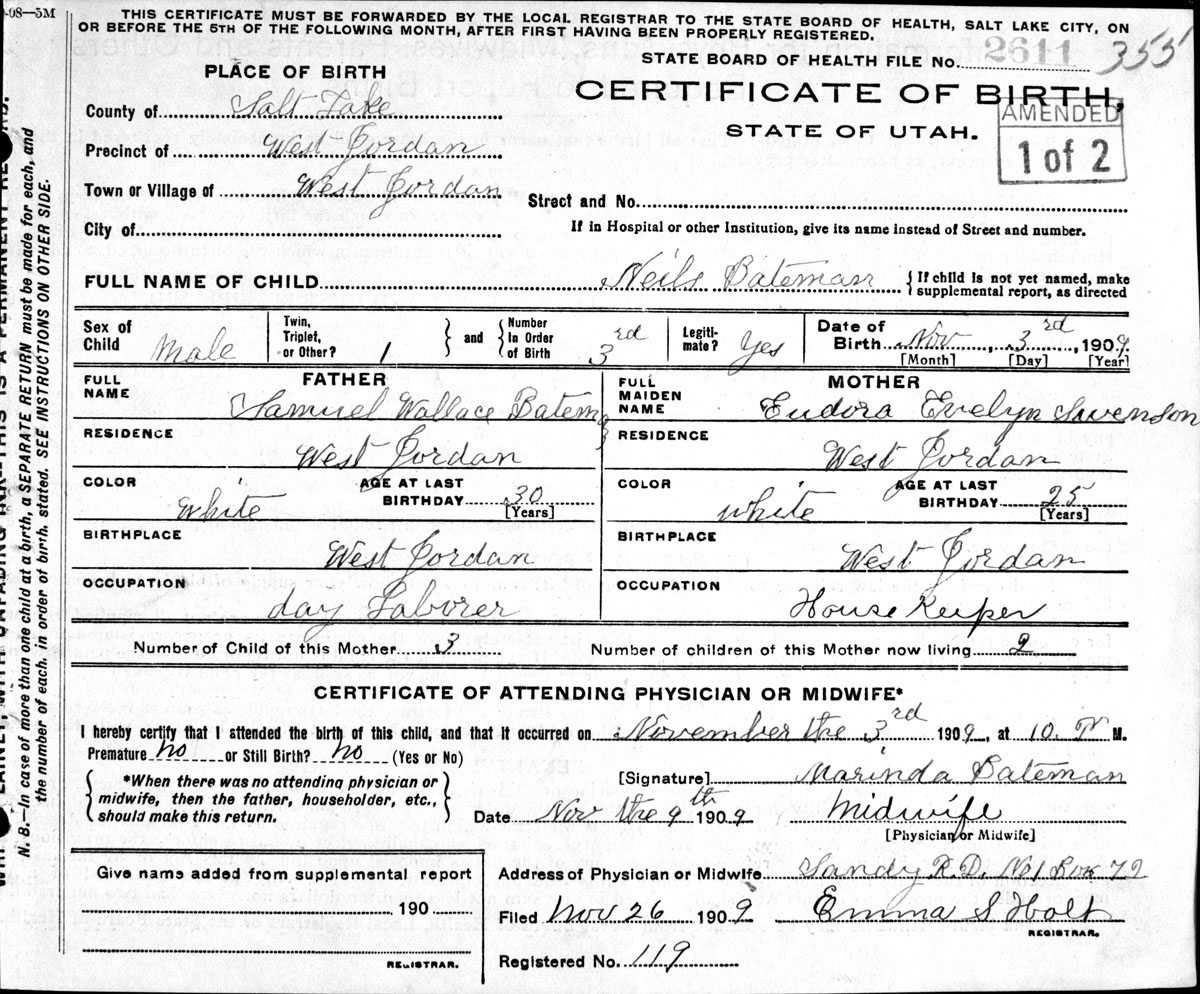 9-08—5M
THIS CERTIFICATE MUST BE FORWARDED BY THE LOCAL REGISTRAR TO THE STATE BOARD OF HEALTH, SALT LAKE CITY, ON
OR BEFORE THE 5TH OF THE FOLLOWING MONTH, AFTER FIRST HAVING BEEN PROPERLY REGISTERED.
STATE BOARD OF HEALTH FILE No. 2611 355
PLACE OF BIRTH
CERTIFICATE OF BIRTH,
STATE OF UTAH.
AMENDED
1 of 2
County of Salt Lake
Precinct of West Jordan
Town or Village of West Jordan
Street and No.
City of
If in Hospital or other Institution, give its name instead of Street and number.
FULL NAME OF CHILD Neils Bateman { If child is not yet named, make
supplemental report, as directed
Sex of Child Male
Twin, Triplet, or Other? 1 } and { Number In Order of Birth 3rd
Legiti-mate? Yes
Date of Birth Nov, 3rd, 1909
[Month] [Day] [Year]
FATHER
FULL NAME Samuel Wallace Batem
RESIDENCE West Jordan
COLOR White AGE AT LAST BIRTHDAY 30 [Years]
BIRTHPLACE West Jordan
OCCUPATION day Laborer
MOTHER
FULL MAIDEN NAME Eudora Evelyn Swenson
RESIDENCE West Jordan
COLOR white AGE AT LAST BIRTHDAY 25 [Years]
BIRTHPLACE West Jordan
OCCUPATION House Keeper
Number of Child of this Mother 3 Number of children of this Mother now living 2
CERTIFICATE OF ATTENDING PHYSICIAN OR MIDWIFE*
I hereby certify that I attended the birth of this child, and that it occurred on November the 3rd 1909, at 10. P M.
Premature no or Still Birth? no (Yes or No)
{ *When there was no attending physician or
midwife, then the father, householder, etc.,
should make this return. }
[Signature] Marinda Bateman
Date Nov the 9th 1909 Midwife
[Physician or Midwife]
Give name added from supplemental report
190
REGISTRAR.
Address of Physician or Midwife Sandy R.D. No1 Box 72
Filed Nov 26 1909 Emma S Holt
REGISTRAR.
Registered No. 119
N. B.—In case of more than one child at a birth, a SEPARATE RETURN must be made for each, and
the number of each, in order of birth, stated. SEE INSTRUCTIONS ON OTHER SIDE.